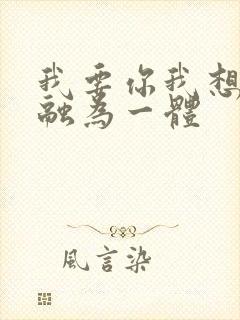 我要你我想
融為一體
風言染